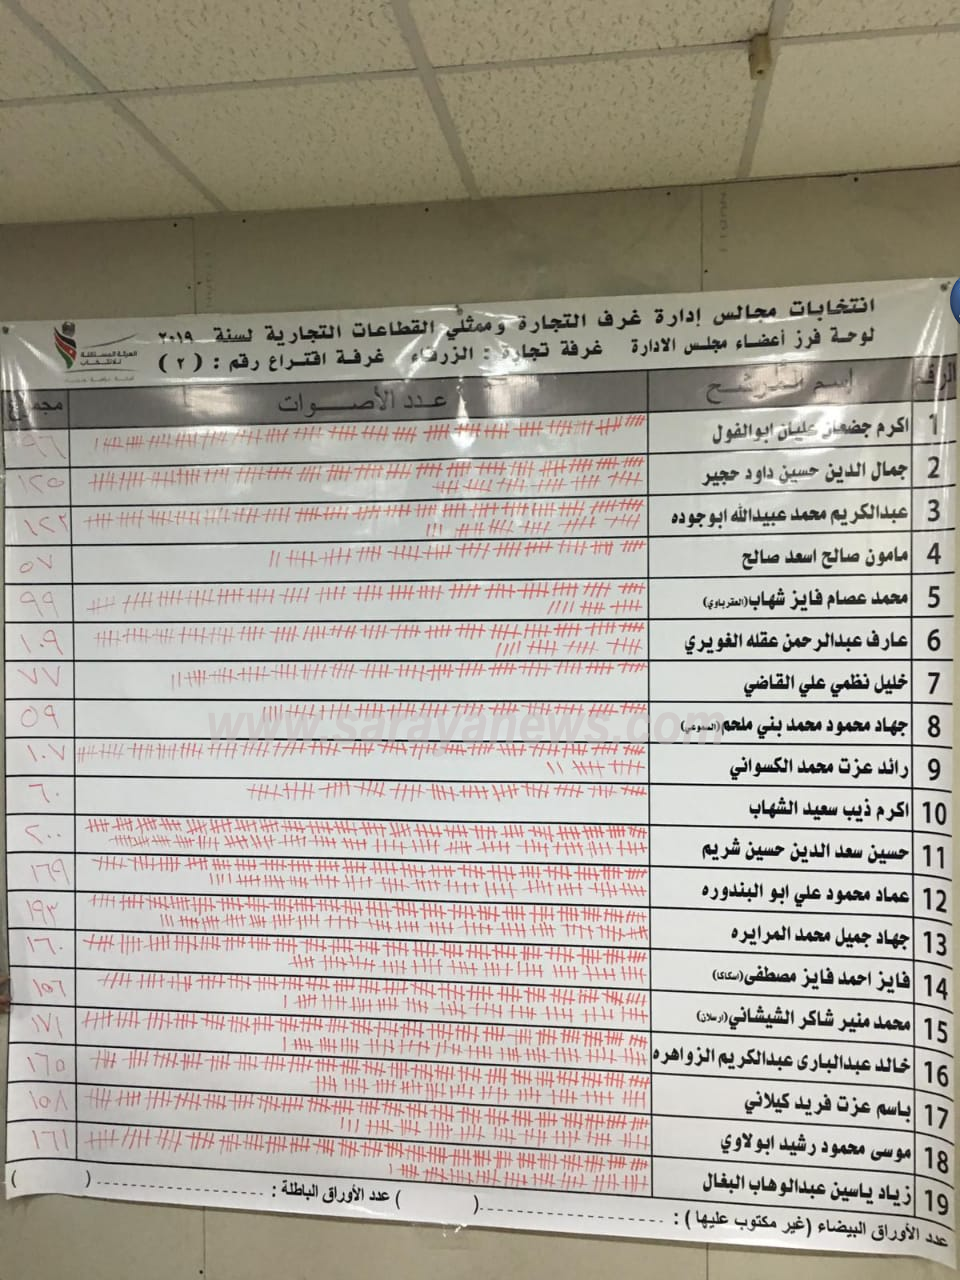 انتخابات مجالس إدارة غرف التجارة وممثلي القطاعات التجارية لسنة ٢٠١٩
لوحة فرز أعضاء مجلس الادارة غرفة تجارة : الزرقاء غرفة اقتراع رقم : ( ٢ )
الهيئة المستقلة
للانتخاب
الرقم إسم المرشح عدد الأصوات مجموع
1 اكرم جضعان عليان ابوالفول ٩٦
2 جمال الدين حسين داود حجير ١٢٥
3 عبدالكريم محمد عبيدالله ابوجوده ١٢٣
4 مامون صالح اسعد صالح ٥٧
5 محمد عصام فايز شهاب(العقرباوي) ٩٩
6 عارف عبدالرحمن عقله الغويري ١٠٩
7 خليل نظمي علي القاضي ٧٧
8 جهاد محمود محمد بني ملحم ٥٩
9 رائد عزت محمد الكسواني ١٠٧
10 اكرم ذيب سعيد الشهاب ٦٠
11 حسين سعد الدين حسين شريم ٢٠٠
12 عماد محمود علي ابو البندوره ١٦٩
13 جهاد جميل محمد المرايره ١٩٣
14 فايز احمد فايز مصطفى(اسكاكا) ١٦٠
15 محمد منير شاكر الشيشاني(ارسلان) ١٥٦
16 خالد عبدالبارى عبدالكريم الزواهره ١٧١
17 باسم عزت فريد كيلاني ١٦٥
18 موسى محمود رشيد ابولاوي ١٥٨
19 زياد ياسين عبدالوهاب البغال ١٦١
عدد الأوراق البيضاء (غير مكتوب عليها ) : --------------------( ) عدد الأوراق الباطلة : ------------------ ( )
www.sarayanews.com